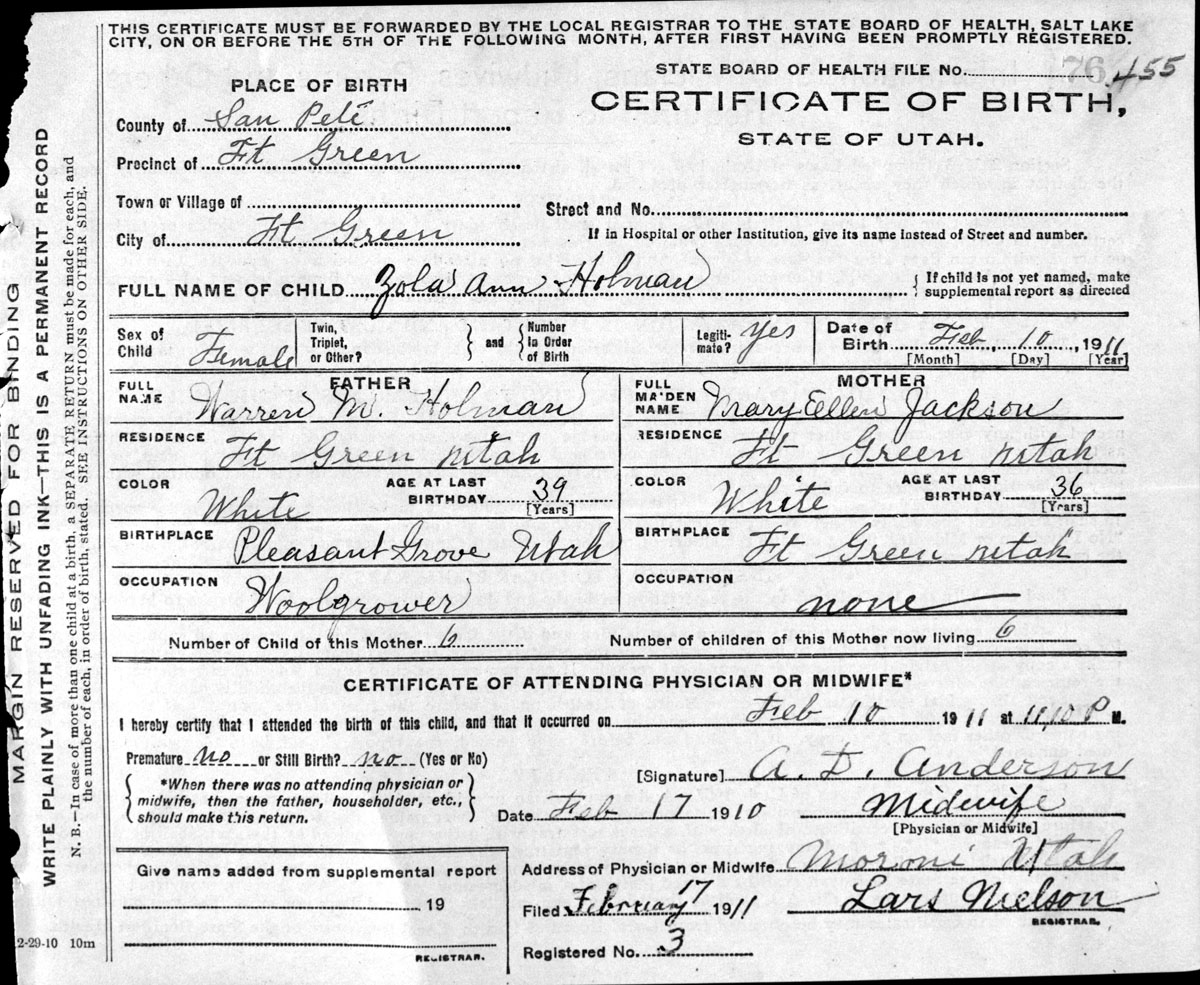 THIS CERTIFICATE MUST BE FORWARDED BY THE LOCAL REGISTRAR TO THE STATE BOARD OF HEALTH, SALT LAKE
CITY, ON OR BEFORE THE 5TH OF THE FOLLOWING MONTH, AFTER FIRST HAVING BEEN PROMPTLY REGISTERED.
STATE BOARD OF HEALTH FILE No. 455
76
CERTIFICATE OF BIRTH,
STATE OF UTAH.
PLACE OF BIRTH
County of San Pete
Precinct of Ft Green
Town or Village of
City of Ft Green
Street and No.
If in Hospital or other Institution, give its name instead of Street and number.
FULL NAME OF CHILD Zola Ann Holman
{ If child is not yet named, make
supplemental report as directed
Sex of Child Female
Twin, Triplet, or Other? } and { Number In Order of Birth
Legiti-mate? Yes
Date of Birth Feb, 10, 1911
[Month] [Day] [Year]
FATHER
FULL NAME Warren M. Holman
RESIDENCE Ft Green Utah
COLOR White AGE AT LAST BIRTHDAY 39 [Years]
BIRTHPLACE Pleasant Grove Utah
OCCUPATION Woolgrower
MOTHER
FULL MAIDEN NAME Mary Ellen Jackson
RESIDENCE Ft Green Utah
COLOR White AGE AT LAST BIRTHDAY 36 [Years]
BIRTHPLACE Ft Green Utah
OCCUPATION none
Number of Child of this Mother 6
Number of children of this Mother now living 6
CERTIFICATE OF ATTENDING PHYSICIAN OR MIDWIFE*
I hereby certify that I attended the birth of this child, and that it occurred on Feb 10 1911 at 11,10 P M.
Premature no or Still Birth? no (Yes or No)
{ *When there was no attending physician or
midwife, then the father, householder, etc.,
should make this return. }
[Signature] A. D. Anderson
Date Feb 17 1910 Midwife
[Physician or Midwife]
Give name added from supplemental report
19
REGISTRAR.
Address of Physician or Midwife Moroni Utah
Filed February 17 1911 Lars Nielson
REGISTRAR.
Registered No. 3
2-29-10 10m
MARGIN RESERVED FOR BINDING
WRITE PLAINLY WITH UNFADING INK—THIS IS A PERMANENT RECORD
N. B.—In case of more than one child at a birth, a SEPARATE RETURN must be made for each, and
the number of each, in order of birth, stated. SEE INSTRUCTIONS ON OTHER SIDE.